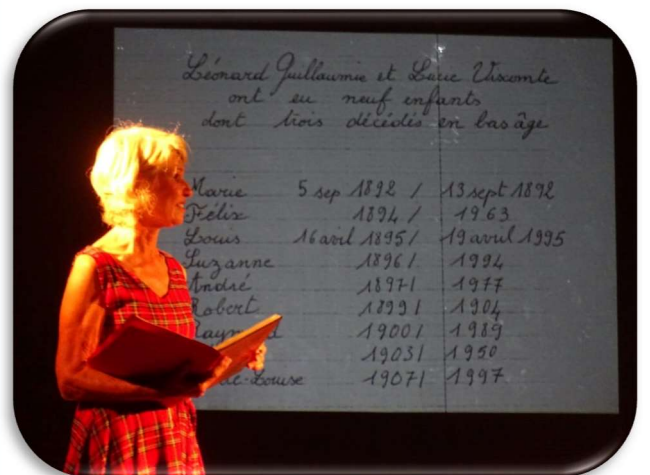 Léonard Guillaumie et Lucie Vixomte
ont eu neuf enfants
dont trois décédés en bas âge
Marie 5 sep 1892 / 13 sept 1892
Félix 1894 / 1963
Louis 16 avil 1895 / 19 avril 1995
Suzanne 1896 / 1994
André 1897 / 1977
Robert 1899 / 1904
Raymond 1900 / 1989
1903 / 1950
de-Louise 1907 / 1997